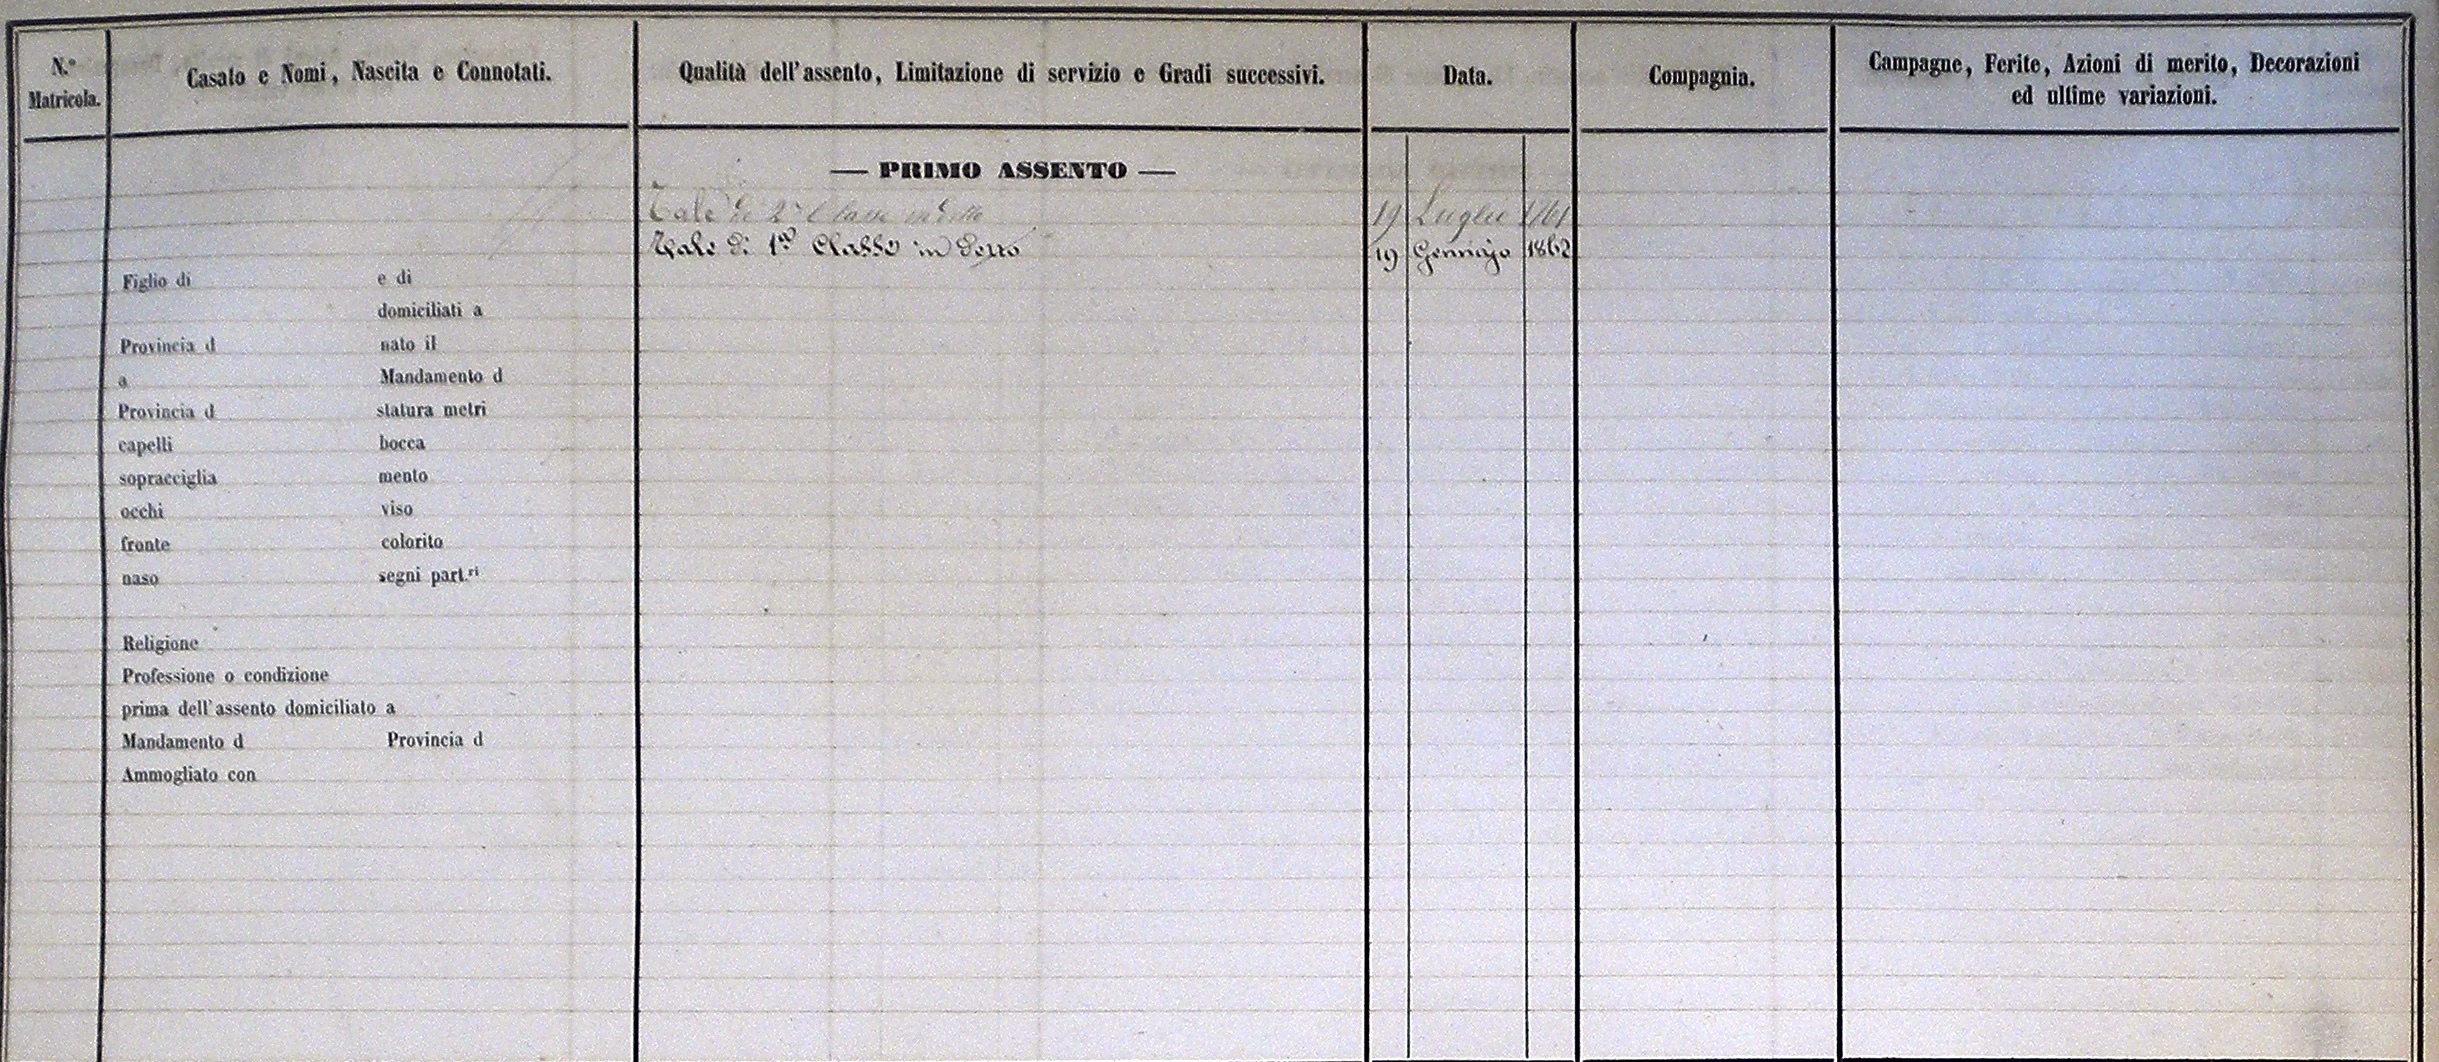 N.º Matricola.
Casato e Nomi, Nascita e Connotati.
Qualità dell'assento, Limitazione di servizio e Gradi successivi.
Data.
Compagnia.
Campagne, Ferite, Azioni di merito, Decorazioni
ed ultime variazioni.
— PRIMO ASSENTO —
Tale di 2ª Classe in detto 19 Luglio 1861
Tale di 1ª Classe in detto 19 Gennajo 1862
Figlio di e di
domiciliati a
Provincia d nato il
a Mandamento d
Provincia d statura metri
capelli bocca
sopracciglia mento
occhi viso
fronte colorito
naso segni part.ri
Religione
Professione o condizione
prima dell'assento domiciliato a
Mandamento d Provincia d
Ammogliato con